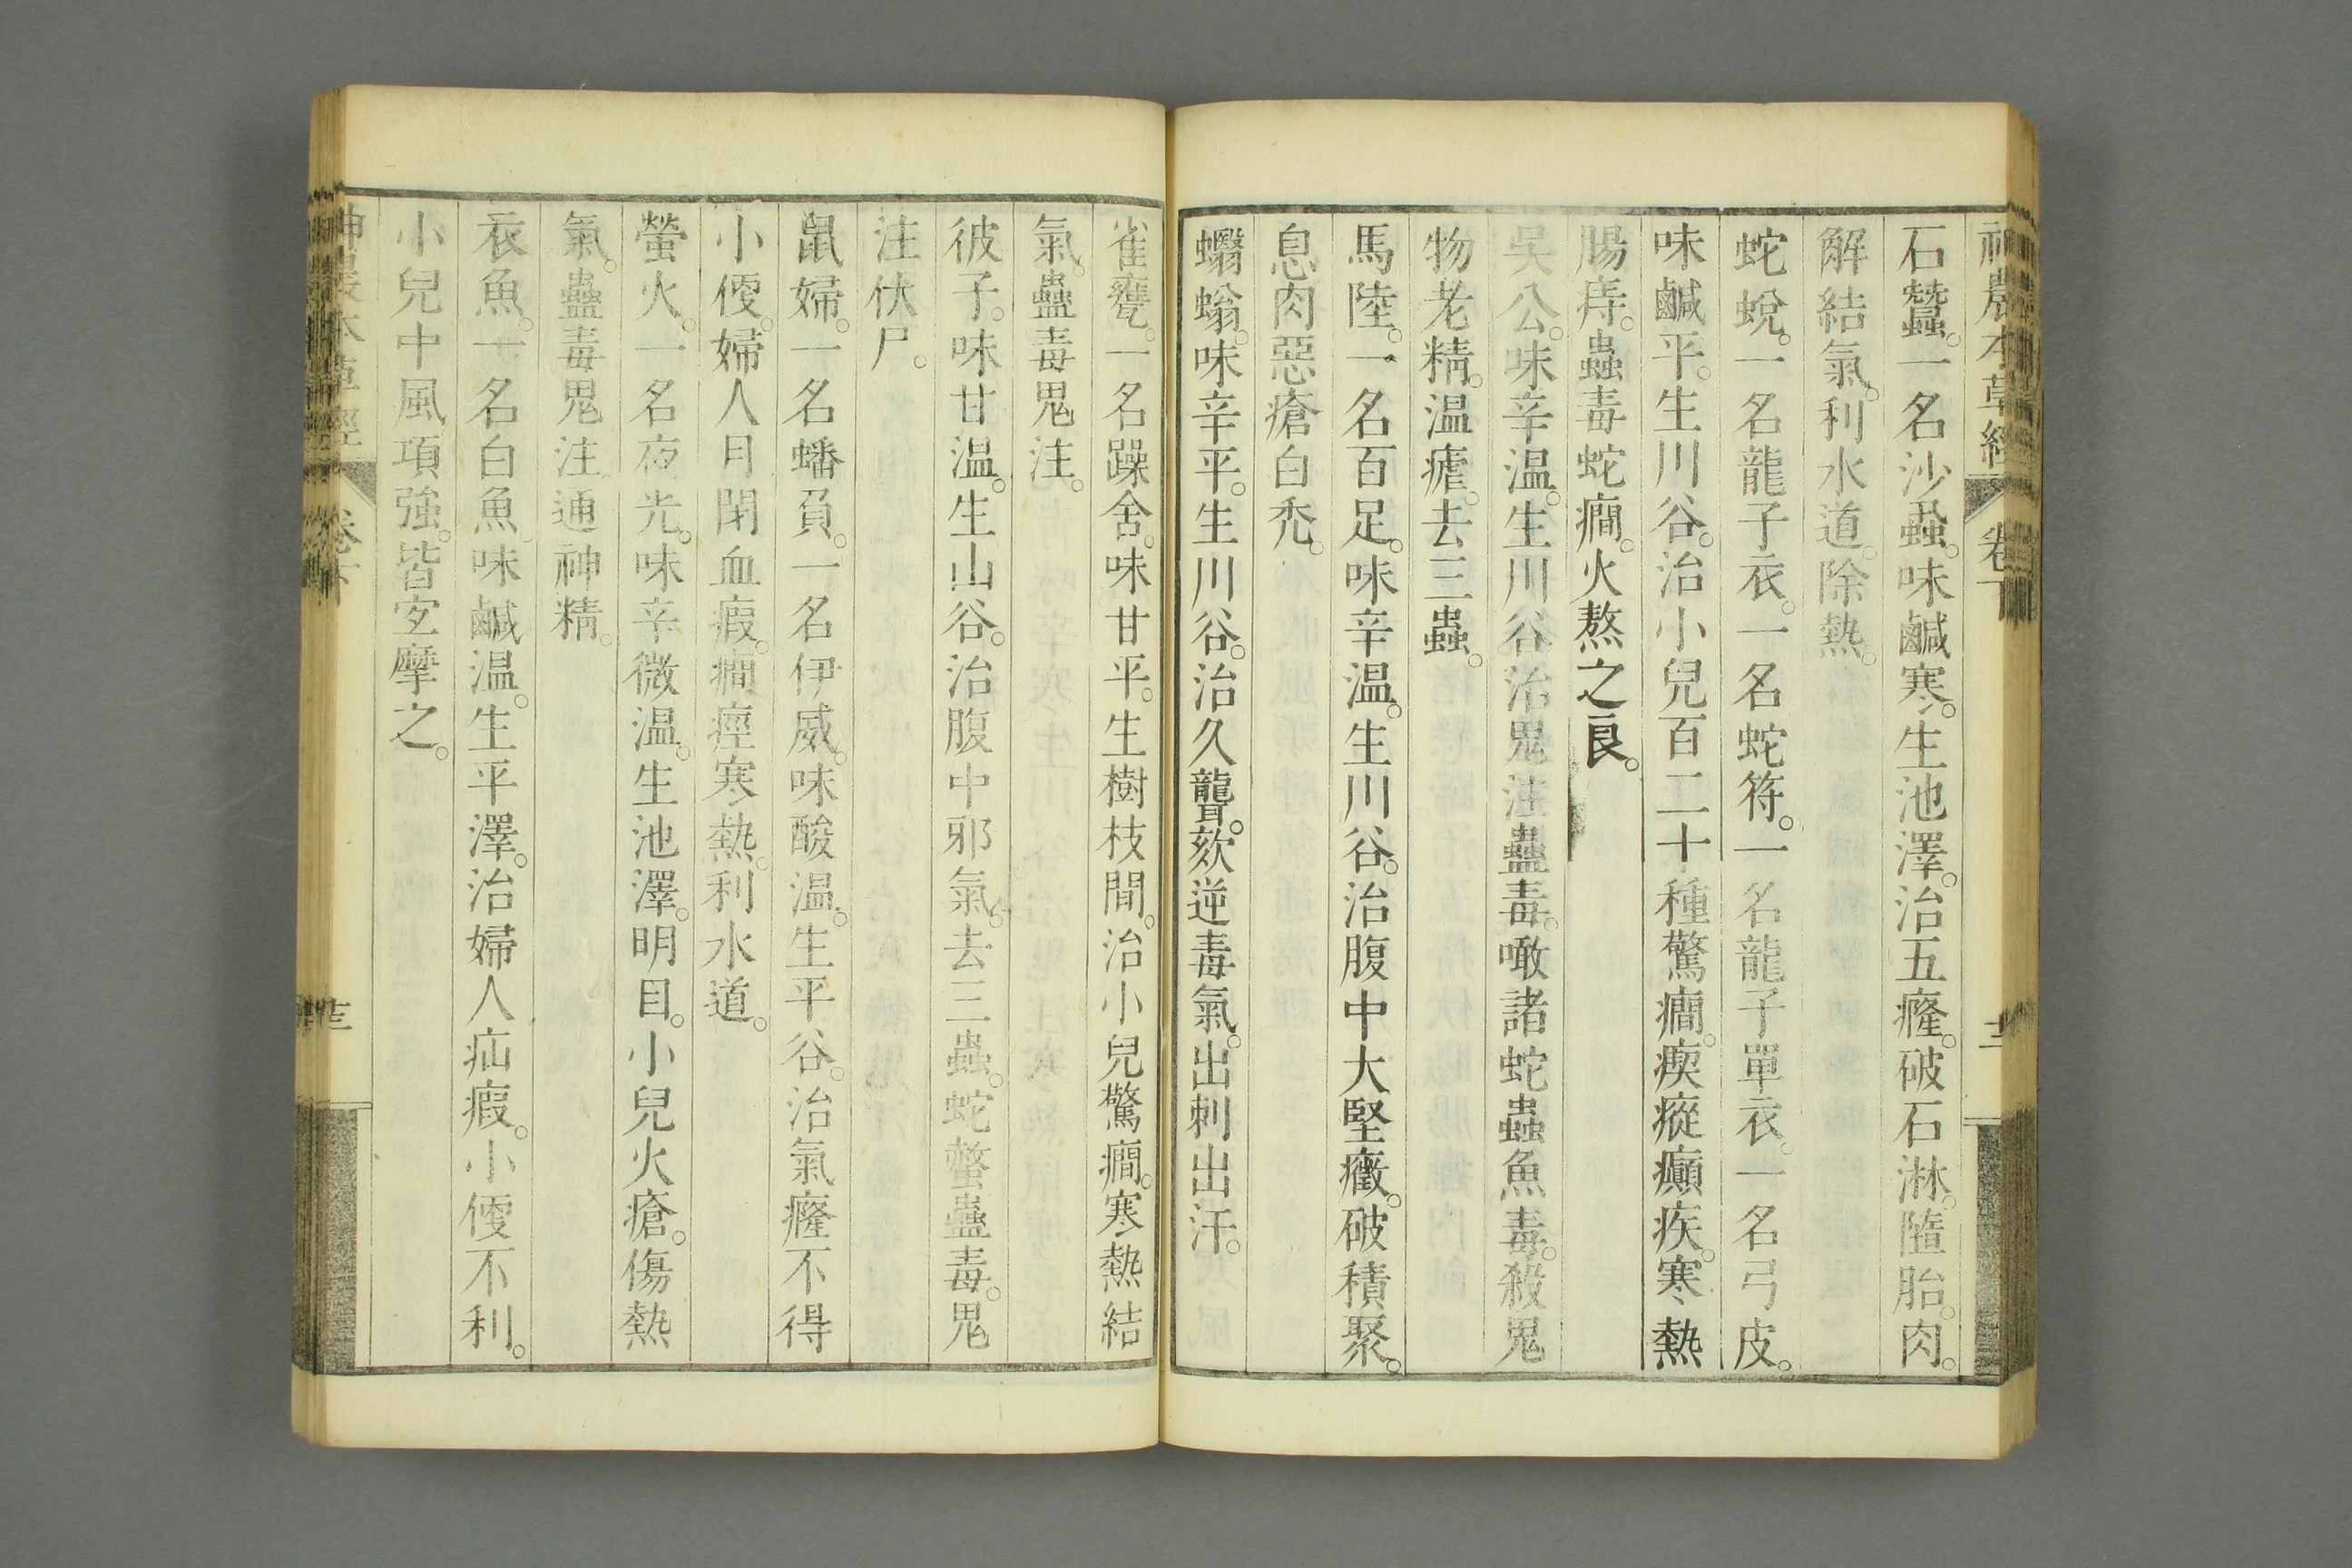 神農本草經 卷下
石蠶。一名沙蝨。味鹹寒。生池澤。治五癃。破石淋。隨胎。肉。
解結氣。利水道。除熱。
蛇蛻。一名龍子衣。一名蛇符。一名龍子單衣。一名弓皮。
味鹹平。生川谷。治小兒百二十種驚癎。瘈瘲癲疾。寒熱
腸痔。蟲毒蛇癎。火熬之良。
吳公。味辛温。生川谷治鬼注蠱毒。噉諸蛇蟲魚毒。殺鬼
物老精。温瘧。去三蟲。
馬陸。一名百足。味辛温。生川谷。治腹中大堅癥。破積聚。
息肉惡瘡白禿。
蠮螉。味辛平。生川谷。治久聾。欬逆毒氣。出刺出汗。
雀甕。一名躁舍。味甘平。生樹枝間。治小兒驚癎。寒熱結
氣。蠱毒鬼注。
彼子。味甘温。生山谷。治腹中邪氣。去三蟲。蛇螫蠱毒。鬼
注伏尸。
鼠婦。一名蟠負。一名伊威。味酸温。生平谷。治氣癃不得
小便。婦人月閉血瘕。癎痙寒熱。利水道。
螢火。一名夜光。味辛微温。生池澤。明目。小兒火瘡。傷熱
氣。蠱毒鬼注通神精。
衣魚。一名白魚味鹹温。生平澤。治婦人疝瘕。小便不利。
小兒中風項強。皆宐摩之。
神農本草經 卷下 十三